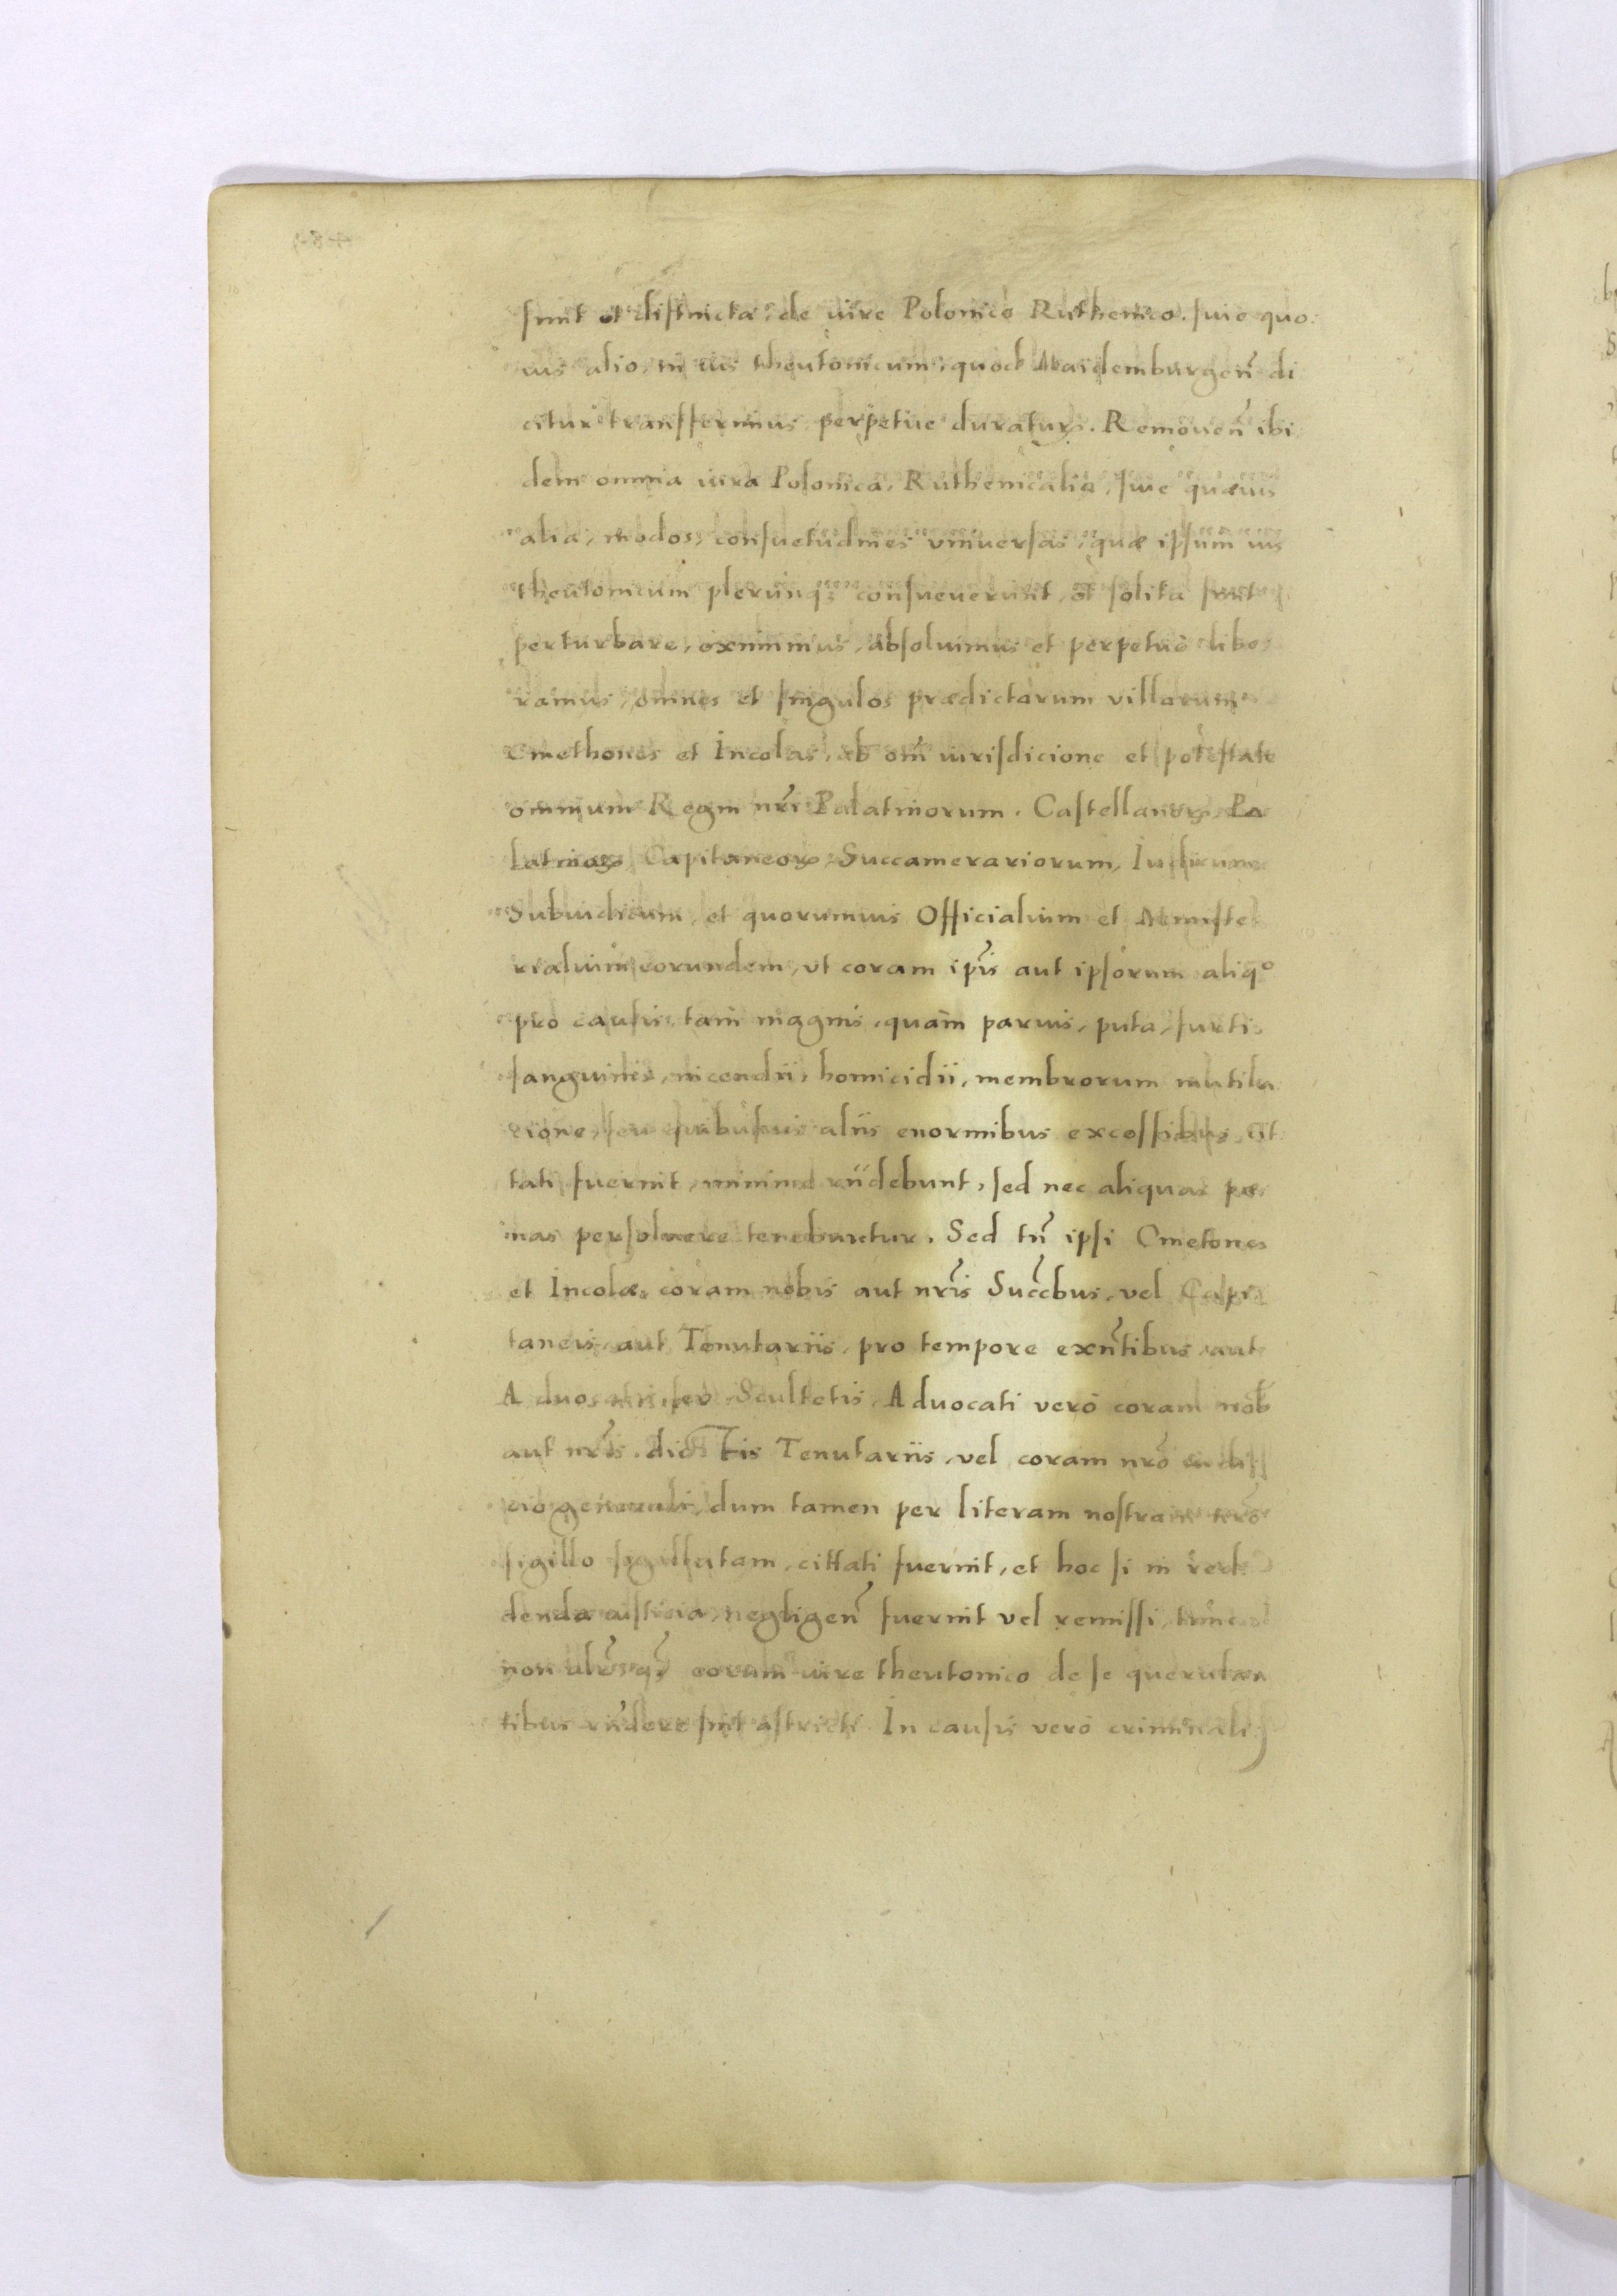 sunt et distincta, de iure Polonico Ruthenico. siue quo
uis alio, in ius theutonicum, quod Maidemburgen̄ di
citur transferimus perpetue duraturū. Remouen̄ ibi
dem omnia iura Polonica, Ruthenicalia, siue quæuis
alia, modos, consuetudines vniuersas, quæ ipsum ius
theutonicum plerunq; consueuerunt, et solita sunt
perturbare, eximimus, absoluimus et perpetuè libe
ramus, omnes et singulos prædictarum villarum
Cmethones et Incolas, ab om̄i iurisdicione et potestate
omnium Regni nr̄i Palatinorum. Castellanorꝝ, Pa
latinorꝝ Capitaneorꝝ, Succamerariorum, Iudicum
Subiudicum, et quorumuis Officialium et Ministe
rialium eorundem, vt coram ip̄is aut ipsorum aliqᵒ
pro causis, tam magnis, quàm paruis, puta, furti
sanguinis, incendii, homicidii, membrorum mutila
cione, seu quibusuis aliis enormibus excessibus, cit
tati fuerint, minime rn̄debunt, sed nec aliquas pœ
nas persoluere tenebuntur. Sed tn̄ ipsi Cmetones
et Incolæ, coram nobis aut nr̄is Succ̄bus, vel Capi
taneis, aut Tenutariis, pro tempore exn̄tibus, aut
Aduocatis, seu Scultetis, Aduocati verò coram nob̄
aut nr̄is. dictis Tenutariis, vel coram nr̄o iudi
cio generali, dum tamen per literam nostram nr̄o
sigillo sigillatam, cittati fuerint, et hoc si in red
denda iusticia, negligen̄ fuerint vel remissi, tunc
non alr̄ q̄ eorum iure theutonico de se querulan
tibus rn̄dere sint astricti. In causis verò criminali